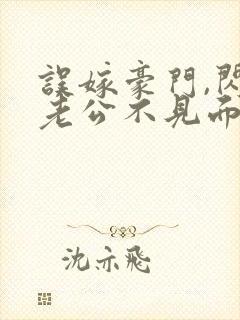 誤嫁豪門,閃
老公不見而
沈亦飛